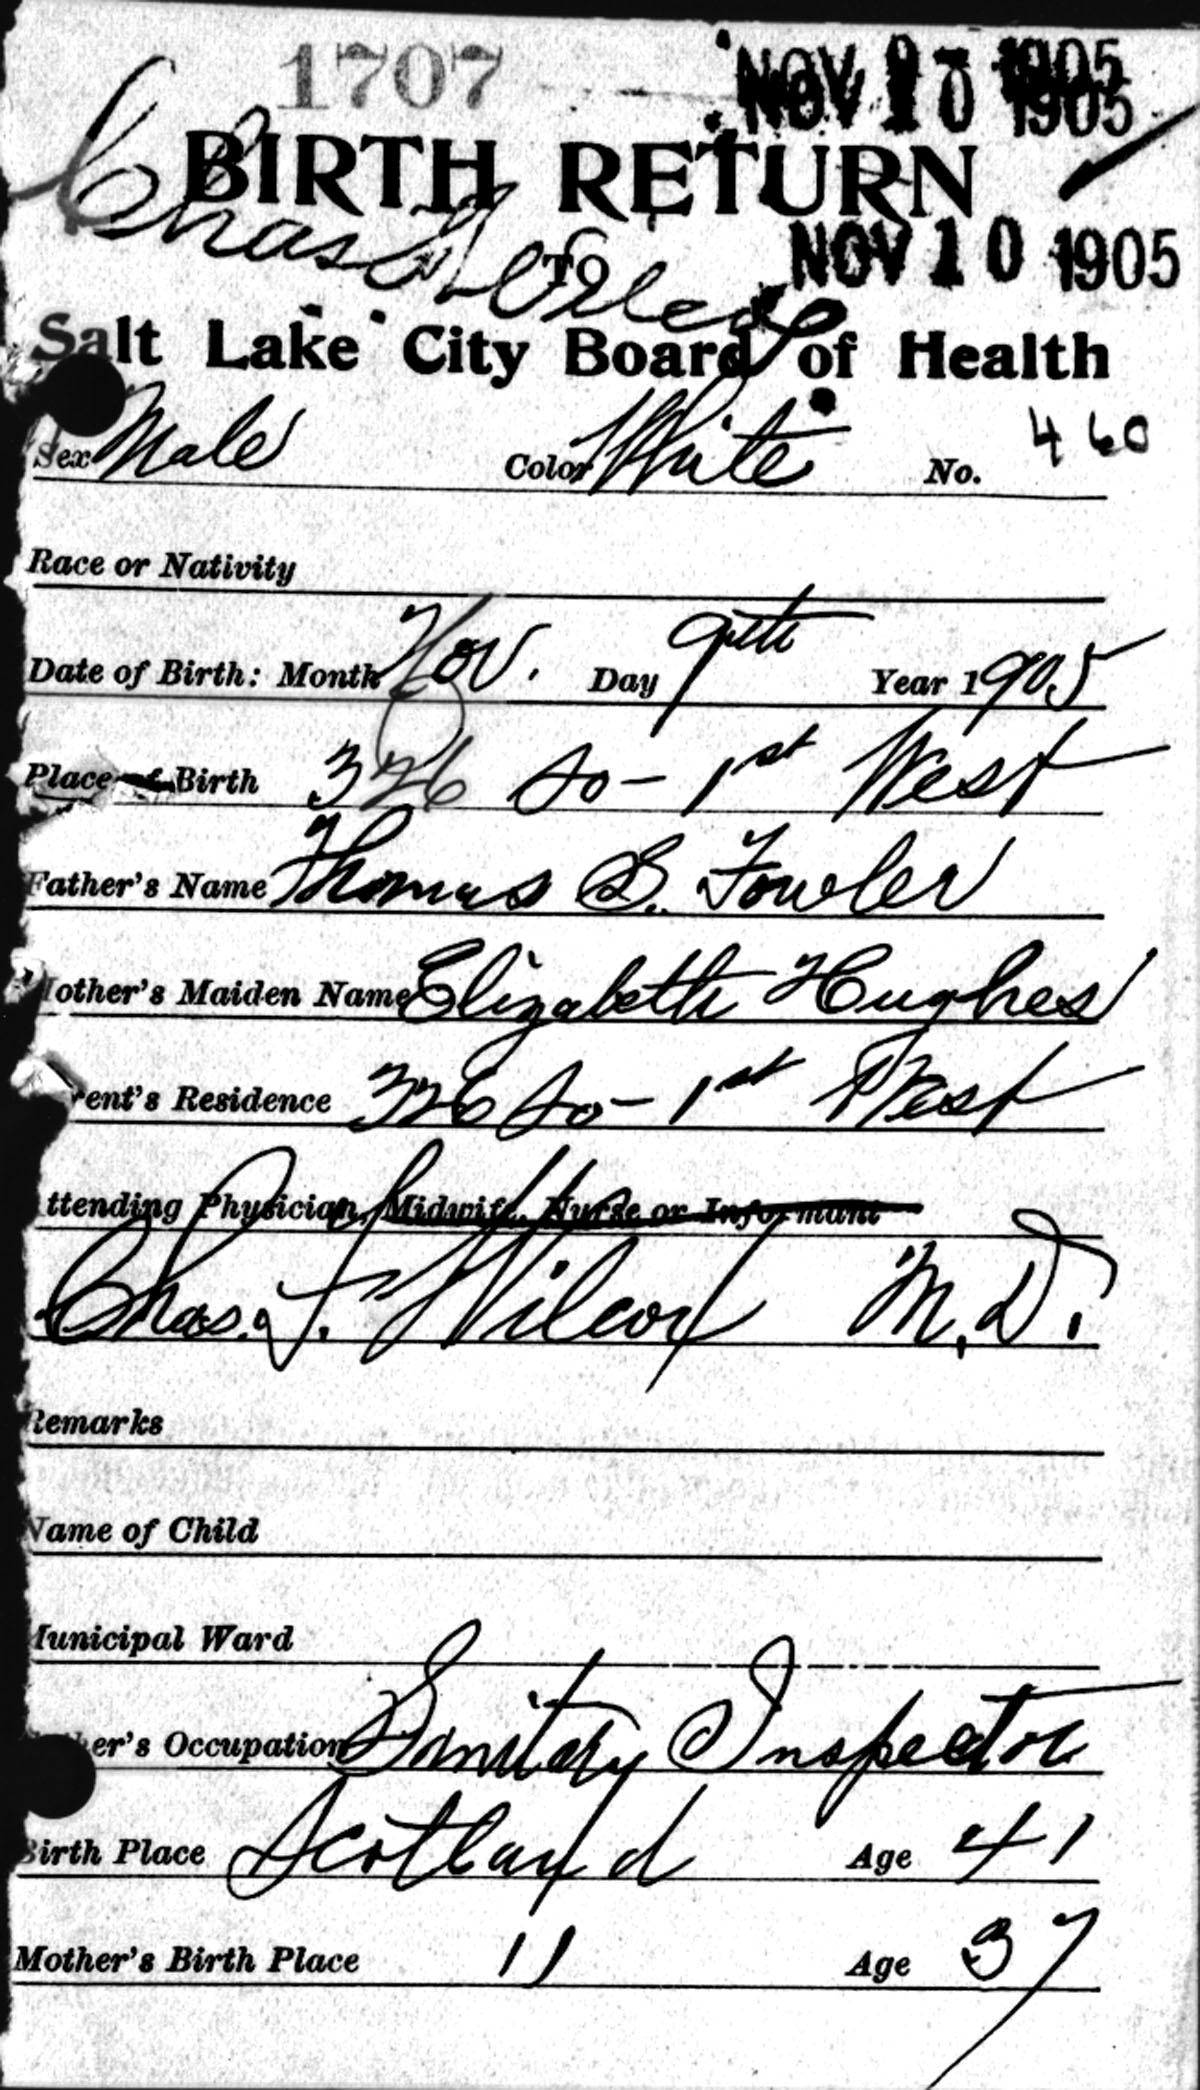 1707 NOV 10 1905
BIRTH RETURN
Chas TO
NOV 10 1905
Salt Lake City Board of Health
Sex Male Color White No. 460
Race or Nativity
Date of Birth: Month Nov. Day 9th Year 1905
Place of Birth 326 So - 1st West
Father's Name Thomas B. Fowler
Mother's Maiden Name Elizabeth Hughes
rent's Residence 326 So - 1st West
ttending Physician, Midwife, Nurse or Informant
Chas. F. Wilcox M.D.
Remarks
Name of Child
Municipal Ward
er's Occupation Sanitary Inspector
Birth Place Scotland Age 41
Mother's Birth Place " Age 37